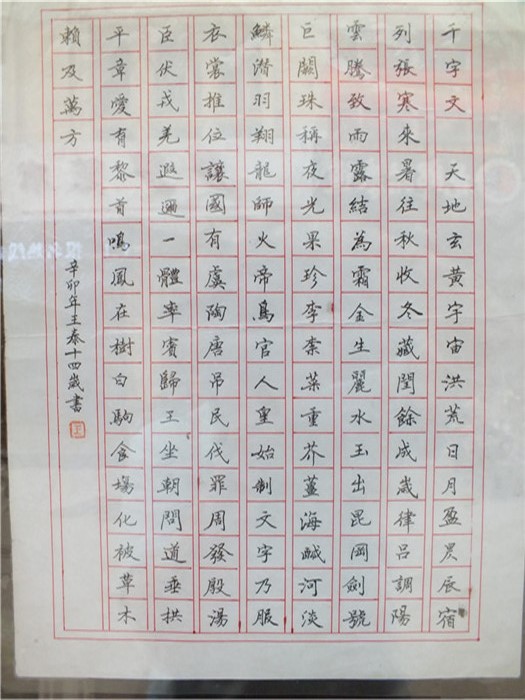 千字文 天地玄黃宇宙洪荒日月盈昃辰宿
列張寒來暑往秋收冬藏閏餘成歲律呂調陽
雲騰致雨露結為霜金生麗水玉出昆岡劍號
巨闕珠稱夜光果珍李柰菜重芥薑海鹹河淡
鱗潛羽翔龍師火帝鳥官人皇始制文字乃服
衣裳推位讓國有虞陶唐吊民伐罪周發殷湯
臣伏戎羌遐邇一體率賓歸王坐朝問道垂拱
平章愛有黎首鳴鳳在樹白駒食場化被草木
賴及萬方
辛卯年王泰十四歲書